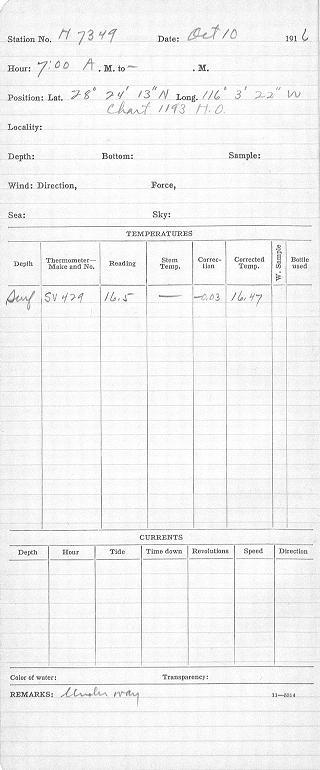 Station No. H 7349 Date: Oct 10 1916
Hour: 7:00 A . M. to — . M.
Position: Lat. 28° 24' 13" N Long. 116° 3' 22" W
Chart 1193 H.O.
Locality:
Depth: Bottom: Sample:
Wind: Direction, Force,
Sea: Sky:
TEMPERATURES
Depth Thermometer— Make and No. Reading Stem Temp. Correc- tion Corrected Temp. W. Sample Bottle used
Surf SV 429 16.5 — -0.03 16.47
CURRENTS
Depth Hour Tide Time down Revolutions Speed Direction
Color of water: Transparency:
REMARKS: Under way 11—5314